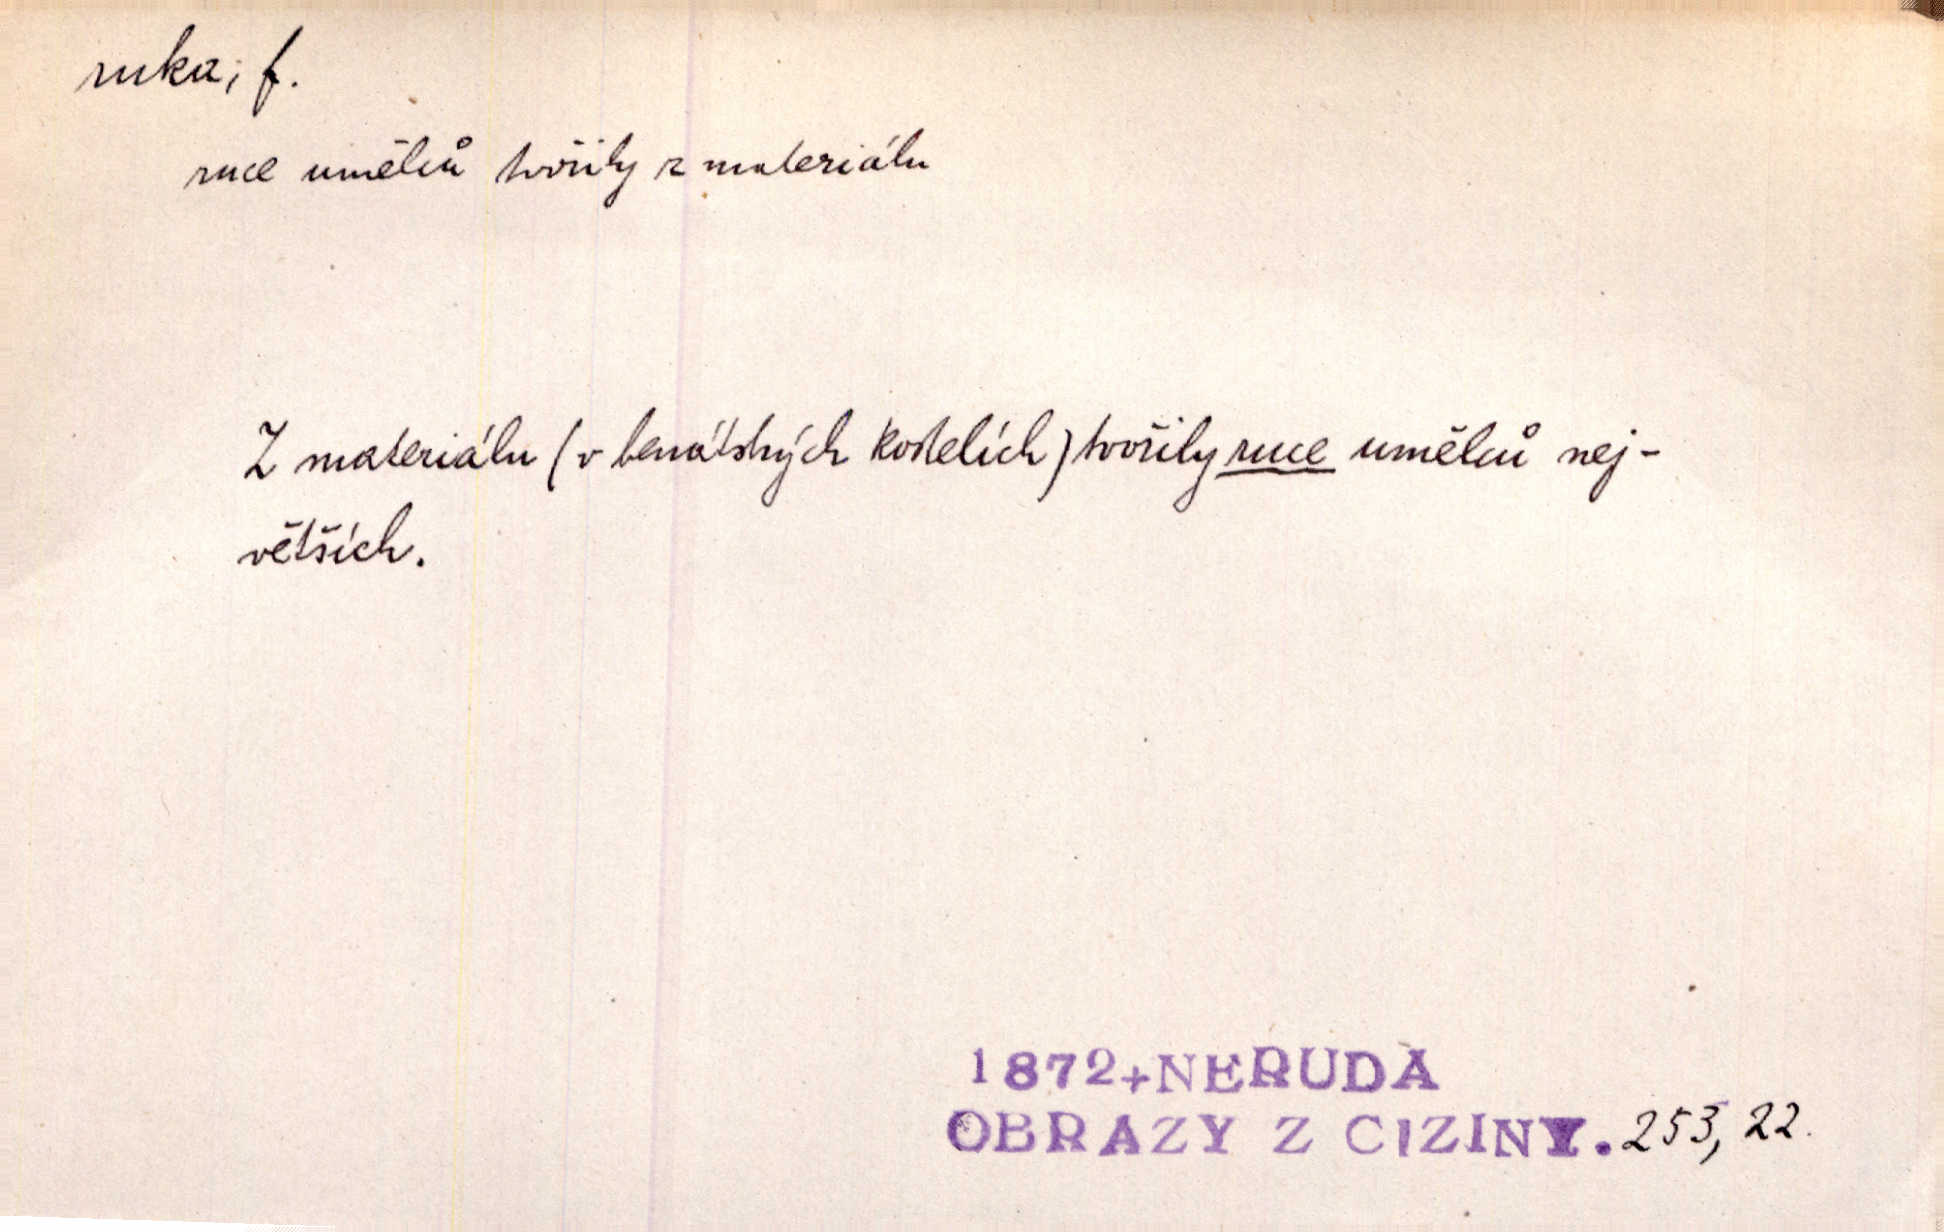 ruka, f.
ruce umělců tvořily z materiálu
Z materiálu (v benátských kostelích) tvořily ruce umělců nej-
větších.
1872+NERUDA
OBRAZY Z CIZINY. 253, 22.